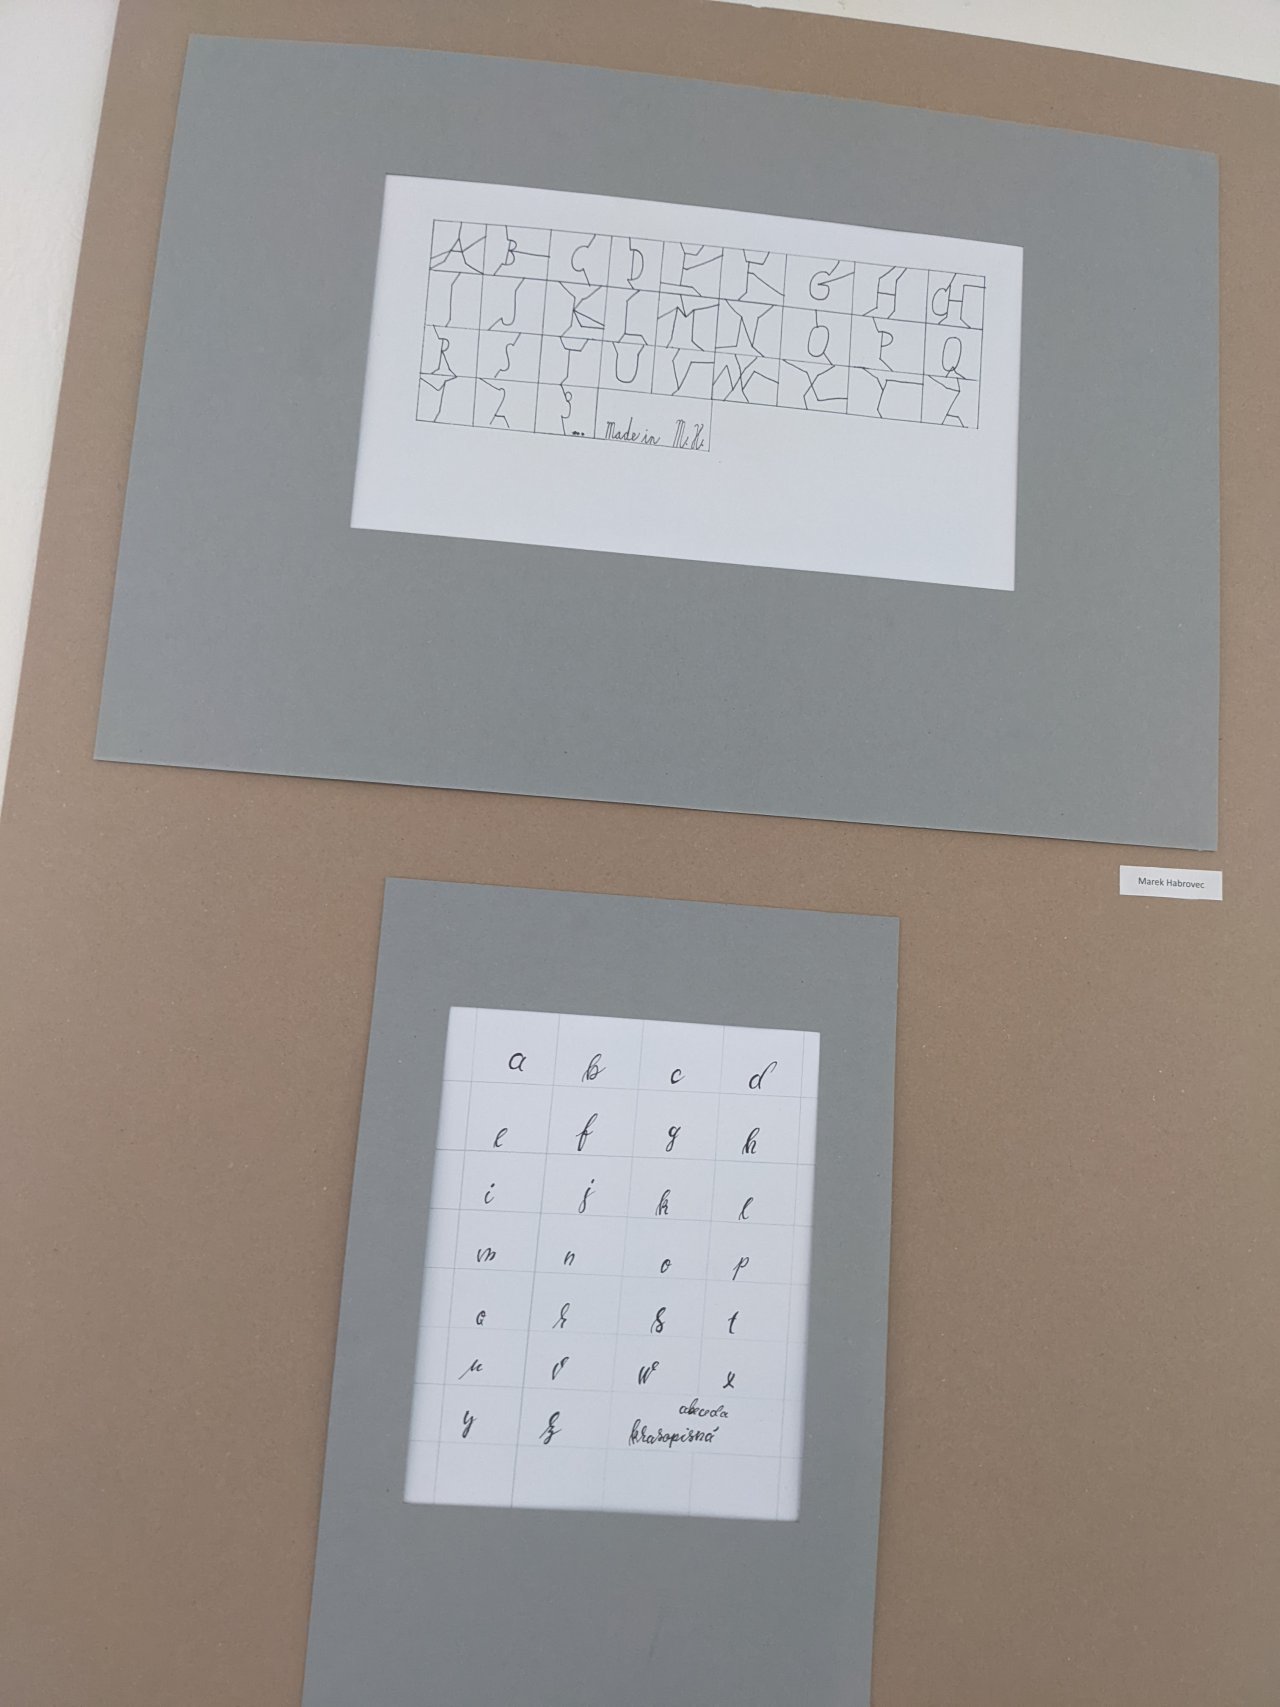 A B C D E F G H CH
I J K L M N O P Q
R S T U V W X Y Z
1 2 3 ... Made in M. H.
Marek Habrovec
a b c d
e f g h
i j k l
m n o p
q r s t
u v w x
y z
abeceda
krasopisná